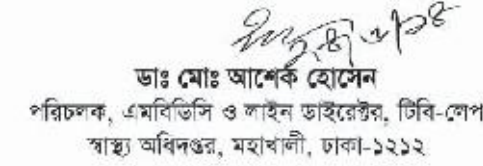 ডাঃ মোঃ আশেক হোসেন
পরিচলক, এমবিডিসি ও লাইন ডাইরেক্টর, টিবি-লেপ
স্বাস্থ্য অধিদপ্তর, মহাখালী, ঢাকা-১২১২